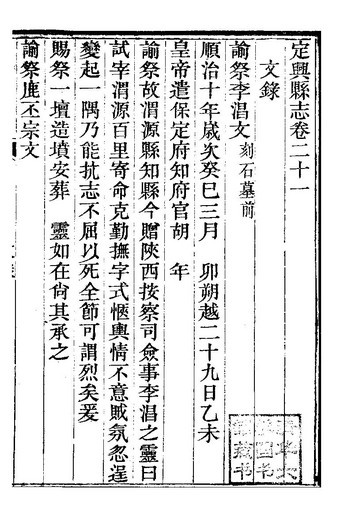 定興縣志卷二十一
文錄
諭祭李昌文 刻石墓前
順治十年歲次癸巳三月 卯朔越二十九日乙未
皇帝遣保定府知府官胡 年
諭祭故渭源縣知縣今贈陝西按察司僉事李昌之靈曰
試宰渭源百里寄命克勤撫字式愜輿情不意賊氛忽逞
變起一隅乃能抗志不屈以死全節可謂烈矣爰
賜祭一壇造墳安葬 靈如在尙其承之
諭祭鹿丕宗文